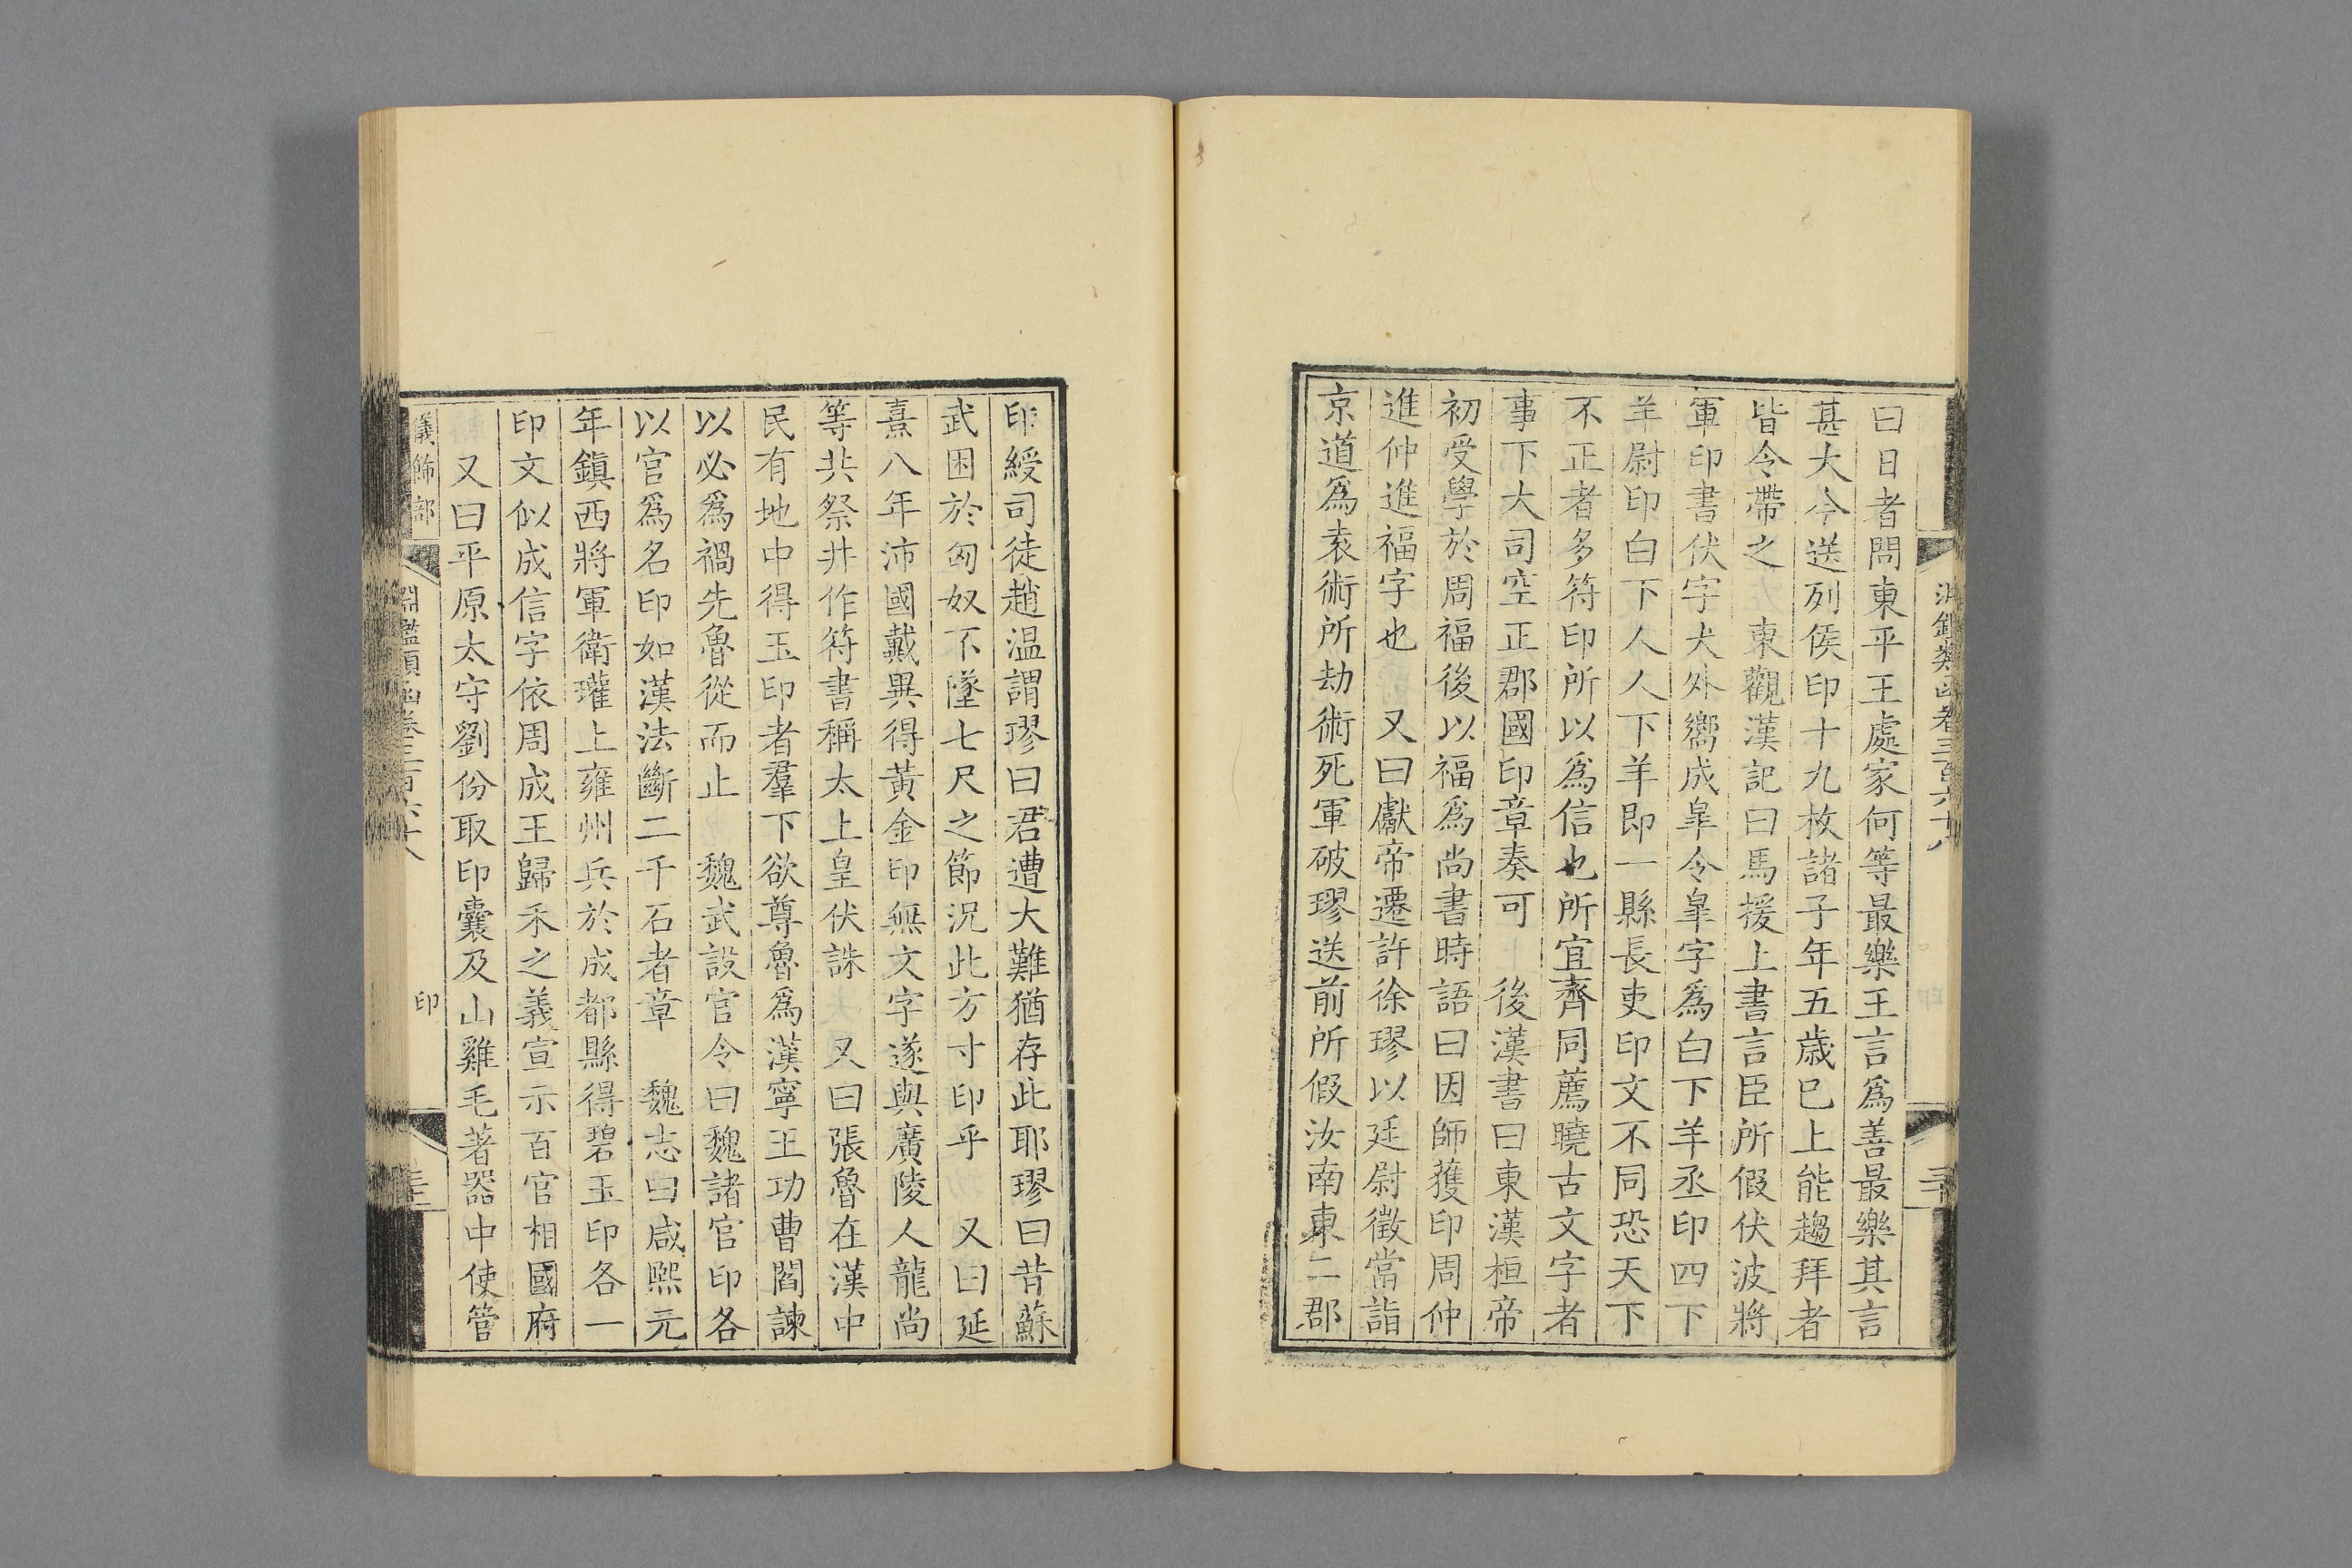 曰日者問東平王處家何等最樂王言爲善最樂其言
甚大今送列侯印十九枚諸子年五歲已上能趨拜者
皆令帶之　東觀漢記曰馬援上書言臣所假伏波將
軍印書伏字犬外嚮成臯令臯字爲白下羊丞印四下
羊尉印白下人人下羊即一縣長吏印文不同恐天下
不正者多符印所以爲信也所宜齊同薦曉古文字者
事下大司空正郡國印章奏可　後漢書曰東漢桓帝
初受學於周福後以福爲尚書時語曰因師獲印周仲
進仲進福字也　又曰獻帝遷許徐璆以廷尉徵當詣
京道爲袁術所劫術死軍破璆送前所假汝南東二郡
印綬司徒趙温謂璆曰君遭大難猶存此耶璆曰昔蘇
武困於匈奴不墜七尺之節況此方寸印乎　又曰延
熹八年沛國戴異得黃金印無文字遂與廣陵人龍尚
等共祭井作符書稱太上皇伏誅　又曰張魯在漢中
民有地中得玉印者羣下欲尊魯爲漢寧王功曹閻諫
以必爲禍先魯從而止　魏武設官令曰魏諸官印各
以官爲名印如漢法斷二千石者章　魏志曰咸熙元
年鎮西將軍衛瓘上雍州兵於成都縣得碧玉印各一
印文似成信字依周成王歸禾之義宣示百官相國府
又曰平原太守劉份取印囊及山雞毛著器中使管
儀飾部　淵鑑類函卷三百六十八　印